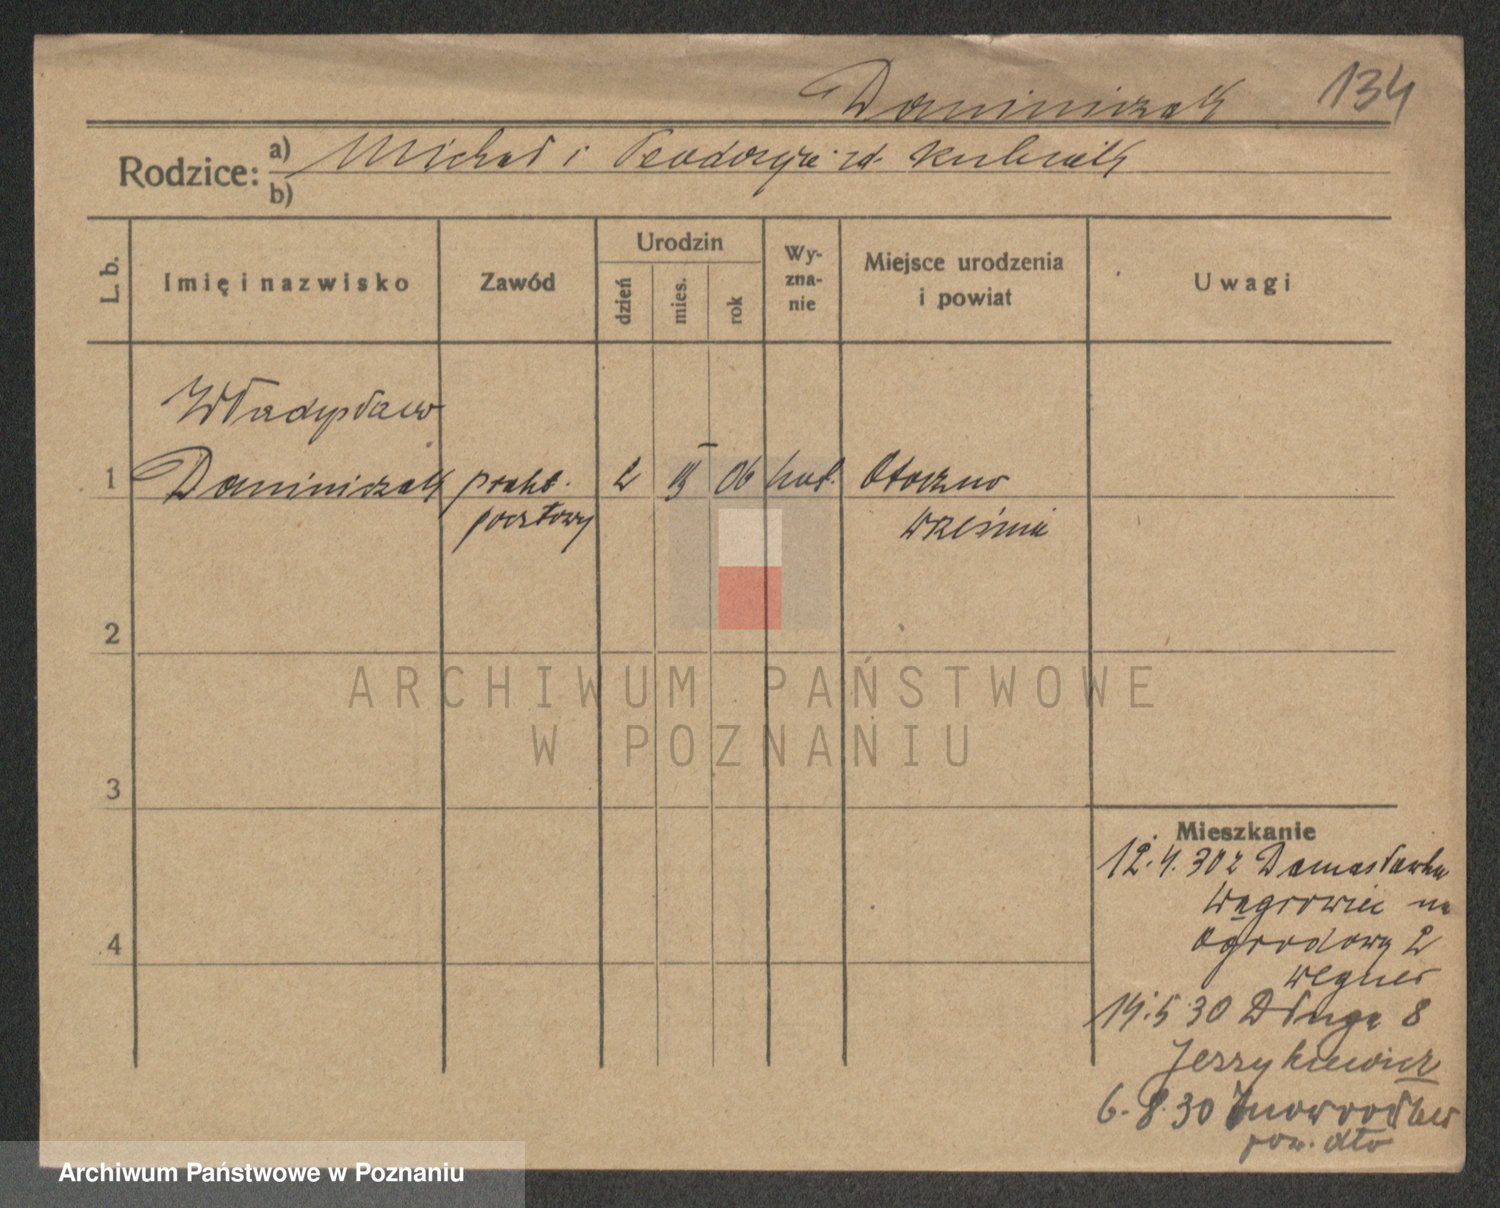 Daminiczak 134
Rodzice: a) Michał i Teodozja zd. Kubiak
b)
L. b. Imię i nazwisko Zawód Urodzin dzień mies. rok Wy-zna-nie Miejsce urodzenia i powiat Uwagi
Władysław
1 Daminiczak prakt. 2 III 06 kat. Otoczno
pocztowy Września
2
ARCHIWUM PAŃSTWOWE
W POZNANIU
3
Mieszkanie
12.4.30 z Damasławka
Wągrowiec na
4 Ogrodową 2
Wegner
19.5 30 Długa 8
Jerzykiewicz
6.8.30 Inowrocław
pow. dto
Archiwum Państwowe w Poznaniu